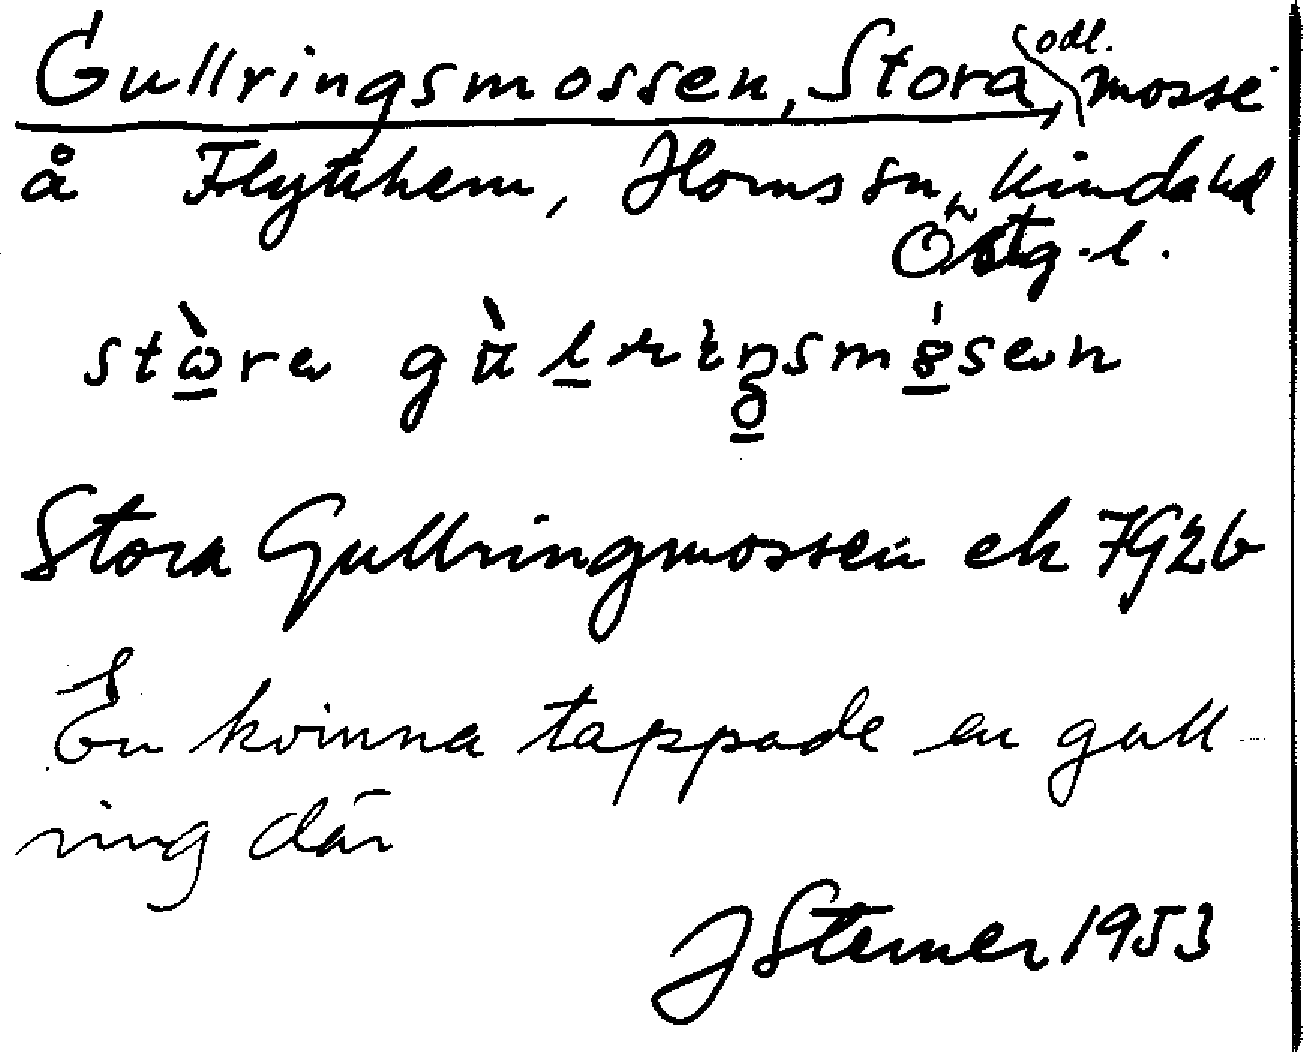 Gullringsmossen, Stora, odl. mosse
å Flythem, Horns sn, Kinda hd
Östg. l.
Stora Gullringmossen ek 7G2b
En kvinna tappade en gull-
ring där
J Sterner 1953